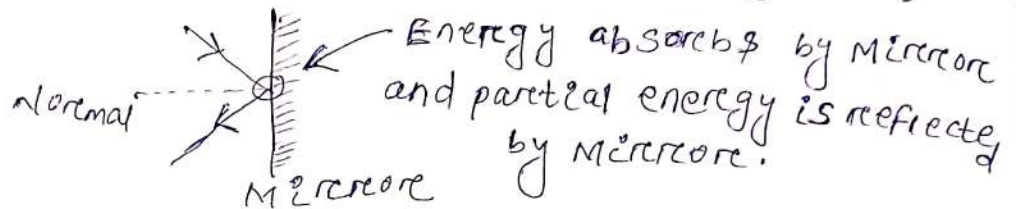 Energy absorbs by Mirror
Normal
and partial energy is reflected
by Mirror.
Mirror